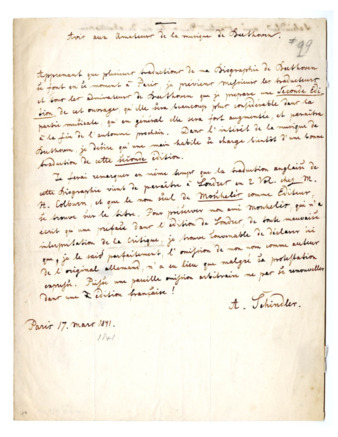 Avis aux Amateur de la musique de Beethoven.
#99
Apprenant que plusieurs traductions de ma Biographie de Beethoven
se font en ce moment à Paris, je previens Messieurs les traducteurs
et tous les Admirateurs de Beethoven que je prepare une Seconde Edi-
tion de cet ouvrage qu'elle sera beaucoup plus considérable dans la
partie musicale qu'en general elle sera fort augmentée, et paraitra
à la fin de l'automne prochain. Dans l'interêt de la musique de
Beethoven, je désire qu'une main habile se charge bientôt d'une bonne
traduction de cette seconde Edition.
Je ferai remarquer en même temps que la traduction anglaise de
cette Biographie vient de paraître à Londres en 2 Vol. chez M.
H. Colburn, et que le nom seul de Moschelès comme Editeur,
se trouve sur le titre. Pour preserver mon ami Moschelès qui n'a
écrit qu'une preface dans l'édition de Londres de toute mauvaise
interprétation de la Critique, je trouve convenable de déclarer ici
que, je le sais parfaitement, l'omission de mon nom comme auteur
de l'original allemand, n'a eu lieu que malgré la protestation
expresse. Puisse une pareille omission arbitraire ne pas se renouveller
dans une édition française!
A. Schindler.
Paris 17. mars 1841.
1841